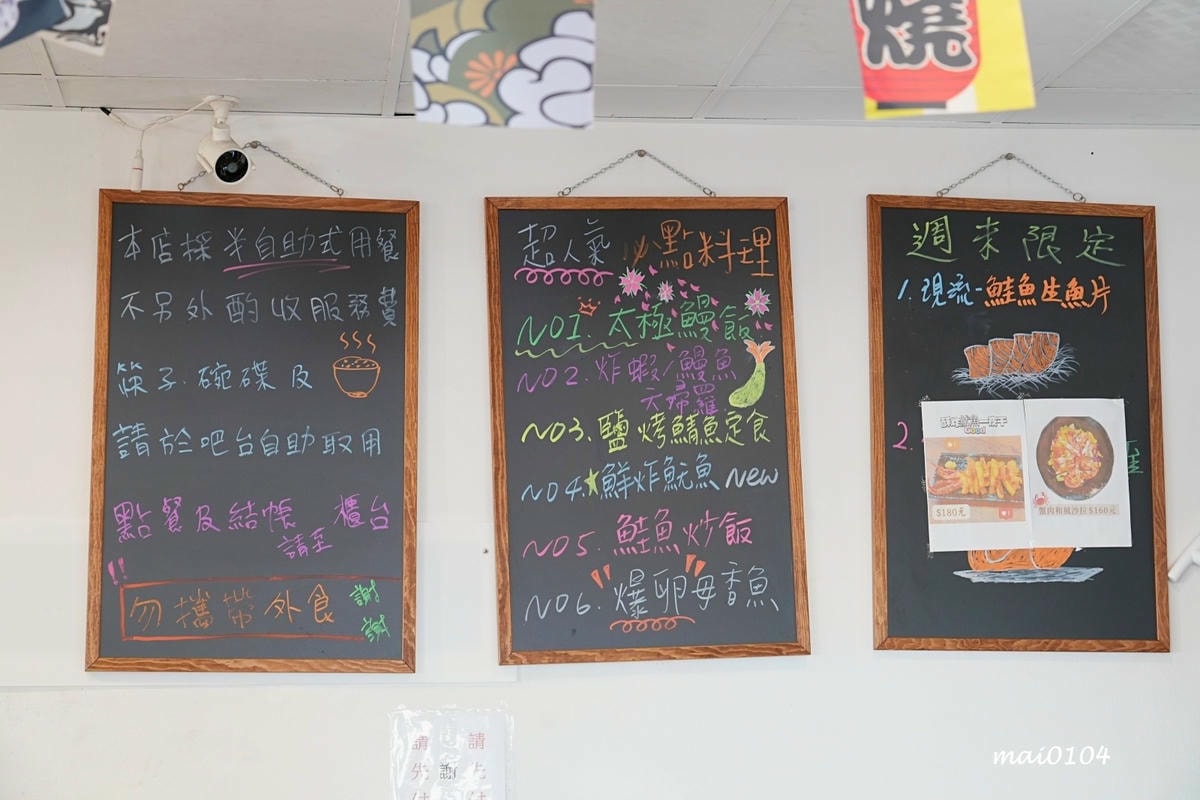 燒
本店採半自助式用餐
不另外酌收服務費
筷子.碗碟及
請於吧台自助取用
點餐及結帳 請至 櫃台
!!
勿攜帶外食 謝謝
超人氣 必點料理
NO1.太極鰻飯
NO2.炸蝦/鰻魚
天婦羅
NO3.鹽烤鯖魚定食
NO4.★鮮炸魷魚 New
NO5.鮭魚炒飯
NO6.爆卵母香魚
週末限定
1.現流-鮭魚生魚片
2.
一夜干
Good
$180元
蟹肉和風沙拉$160元
請 請
先 謝
mai0104